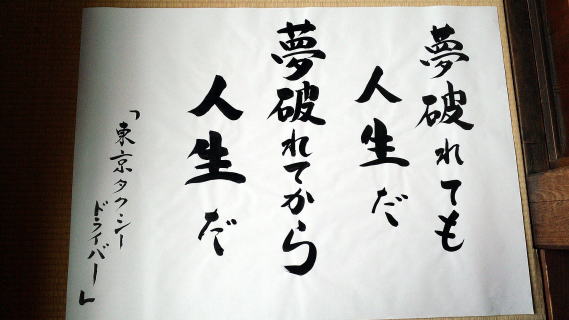 夢破れても
人生だ
夢破れてから
人生だ
「東京タクシー
ドライバー」